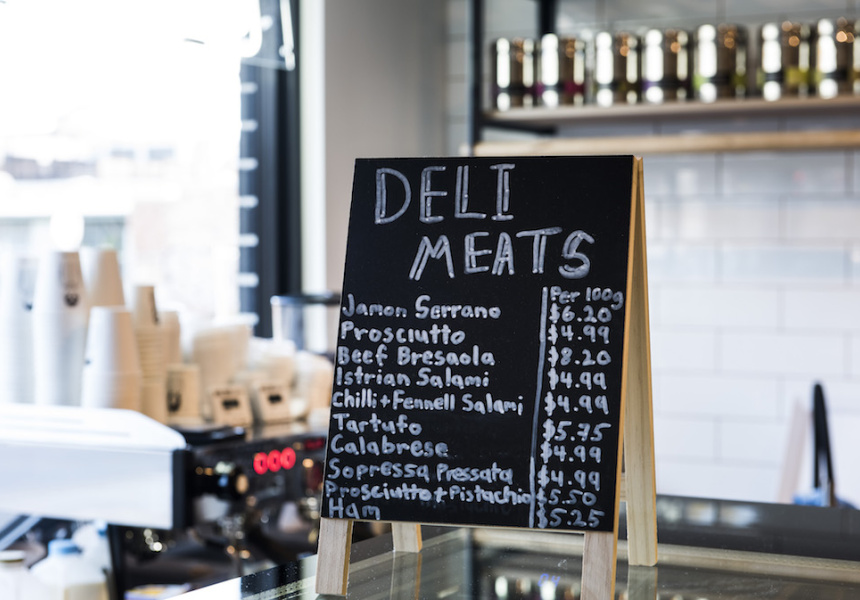 DELI
MEATS
Per 100g
Jamon Serrano $6.20
Prosciutto $4.99
Beef Bresaola $8.20
Istrian Salami $4.99
Chilli + Fennell Salami $4.99
Tartufo $5.75
Calabrese $4.99
Sopressa Pressata $4.99
Prosciutto + Pistachio $5.50
Ham $5.25
000